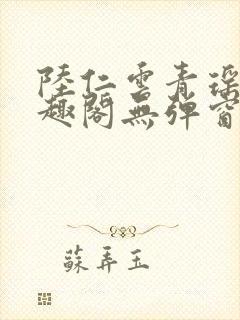 陸仁雲青瑶
趣閣無彈窗
蘇弄玉